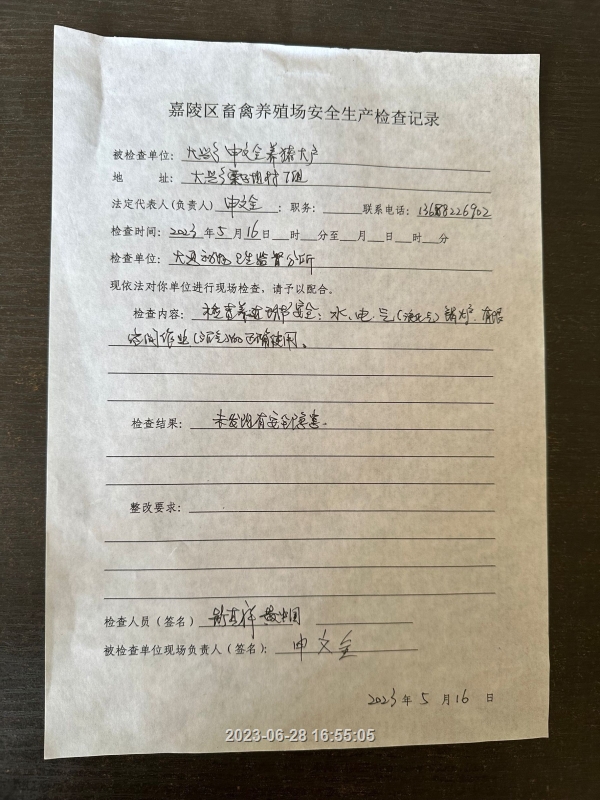 嘉陵区畜禽养殖场安全生产检查记录
被检查单位：大兴乡申文全养猪大户
地 址：大兴乡 村7组
法定代表人(负责人) 申文全 ：职务： 联系电话：
检查时间：2023年5月16日 时 分至 月 日 时 分
检查单位：大兴动物卫生监督分所
现依法对你单位进行现场检查，请予以配合。
检查内容：检查养殖场 安全：水、电、气(液化气) 锅炉、有限
空间作业(沼气)的正确使用。
检查结果：未发现有安全隐患。
整改要求：
检查人员（签名）
被检查单位现场负责人（签名）：申文全
2023年5月16日
2023-06-28 16:55:05